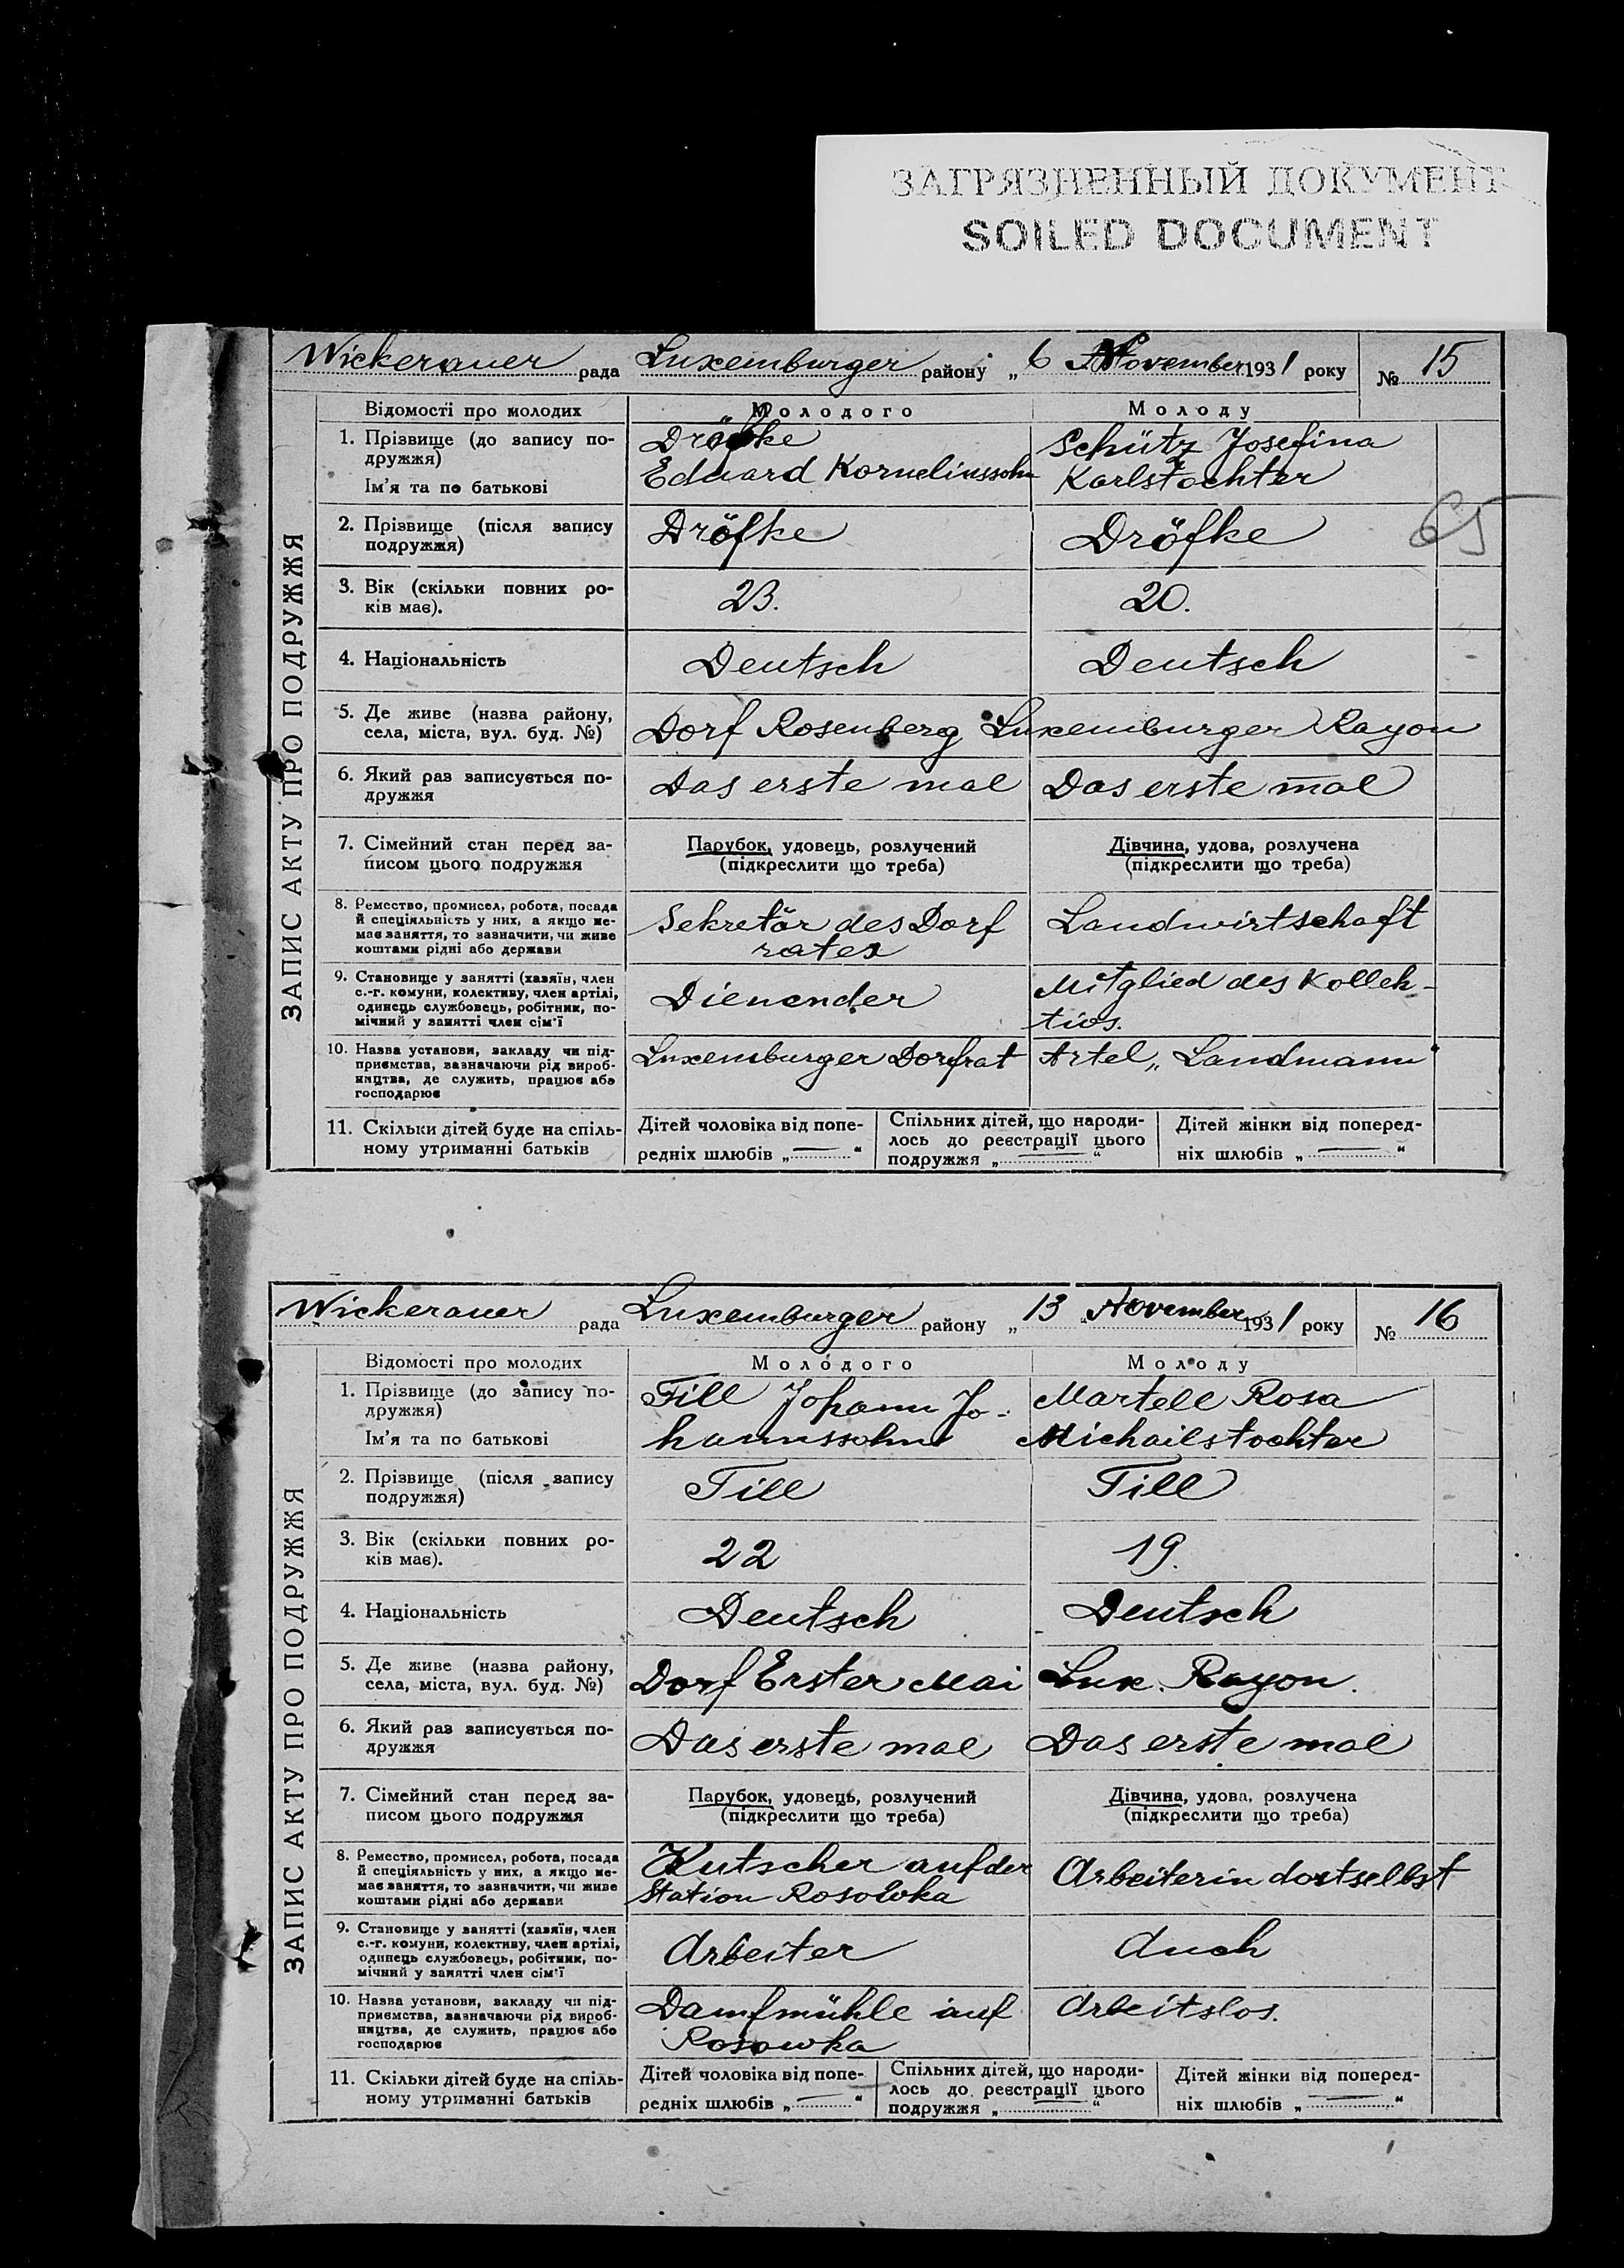 ЗАГРЯЗНЕННЫЙ ДОКУМЕНТ
SOILED DOCUMENT
Wickerauer рада Luxemburger району „ 6 November 1931 року № 15
ЗАПИС АКТУ ПРО ПОДРУЖЖЯ
Відомості про молодих
Молодого
Молоду
1. Прізвище (до запису по-
дружжя)
Ім'я та по батькові
Dröfke
Eduard Korneliussohn
Schütz Josefina
Karlstochter
2. Прізвище (після запису
подружжя)
Dröfke
Dröfke
65
3. Вік (скільки повних ро-
ків має).
23.
20.
4. Національність
Deutsch
Deutsch
5. Де живе (назва району,
села, міста, вул. буд. №)
Dorf Rosenberg Luxemburger Rayon
6. Який раз записується по-
дружжя
Das erste mal
Das erste mal
7. Сімейний стан перед за-
писом цього подружжя
Парубок, удовець, розлучений
(підкреслити що треба)
Дівчина, удова, розлучена
(підкреслити що треба)
8. Ремество, промисел, робота, посада
й спеціяльність у них, а якщо не-
має заняття, то зазначити, чи живе
коштами рідні або держави
Sekretär des Dorf
rates
Landwirtschaft
9. Становище у занятті (хазяїн, член
с.-г. комуни, колективу, член артілі,
одинець службовець, робітник, по-
мічний у занятті член сім'ї
Dienender
Mitglied des Kollek-
tivs.
10. Назва установи, закладу чи під-
приємства, зазначаючи рід вироб-
ництва, де служить, працює або
господарює
Luxemburger Dorfrat
Artel „Landmann"
11. Скільки дітей буде на спіль-
ному утриманні батьків
Дітей чоловіка від попе-
редніх шлюбів „ — "
Спільних дітей, що народи-
лось до реєстрації цього
подружжя „ — "
Дітей жінки від поперед-
ніх шлюбів „ — "
Wickerauer рада Luxemburger району „ 13 „ November 1931 року № 16
ЗАПИС АКТУ ПРО ПОДРУЖЖЯ
Відомості про молодих
Молодого
Молоду
1. Прізвище (до запису по-
дружжя)
Ім'я та по батькові
Till Johann Jo-
hannssohn
Martell Rosa
Michailstochter
2. Прізвище (після запису
подружжя)
Till
Till
3. Вік (скільки повних ро-
ків має).
22
19.
4. Національність
Deutsch
Deutsch
5. Де живе (назва району,
села, міста, вул. буд. №)
Dorf Erster Mai
Lux. Rayon.
6. Який раз записується по-
дружжя
Das erste mal
Das erste mal
7. Сімейний стан перед за-
писом цього подружжя
Парубок, удовець, розлучений
(підкреслити що треба)
Дівчина, удова, розлучена
(підкреслити що треба)
8. Ремество, промисел, робота, посада
й спеціяльність у них, а якщо не-
має заняття, то зазначити, чи живе
коштами рідні або держави
Kutscher auf der
Station Rosowka
Arbeiterin dortselbst
9. Становище у занятті (хазяїн, член
с.-г. комуни, колективу, член артілі,
одинець службовець, робітник, по-
мічний у занятті член сім'ї
Arbeiter
Auch
10. Назва установи, закладу чи під-
приємства, зазначаючи рід вироб-
ництва, де служить, працює або
господарює
Damfmühle auf
Rosowka
Arbeitslos.
11. Скільки дітей буде на спіль-
ному утриманні батьків
Дітей чоловіка від попе-
редніх шлюбів „ — "
Спільних дітей, що народи-
лось до реєстрації цього
подружжя „ — "
Дітей жінки від поперед-
ніх шлюбів „ — "